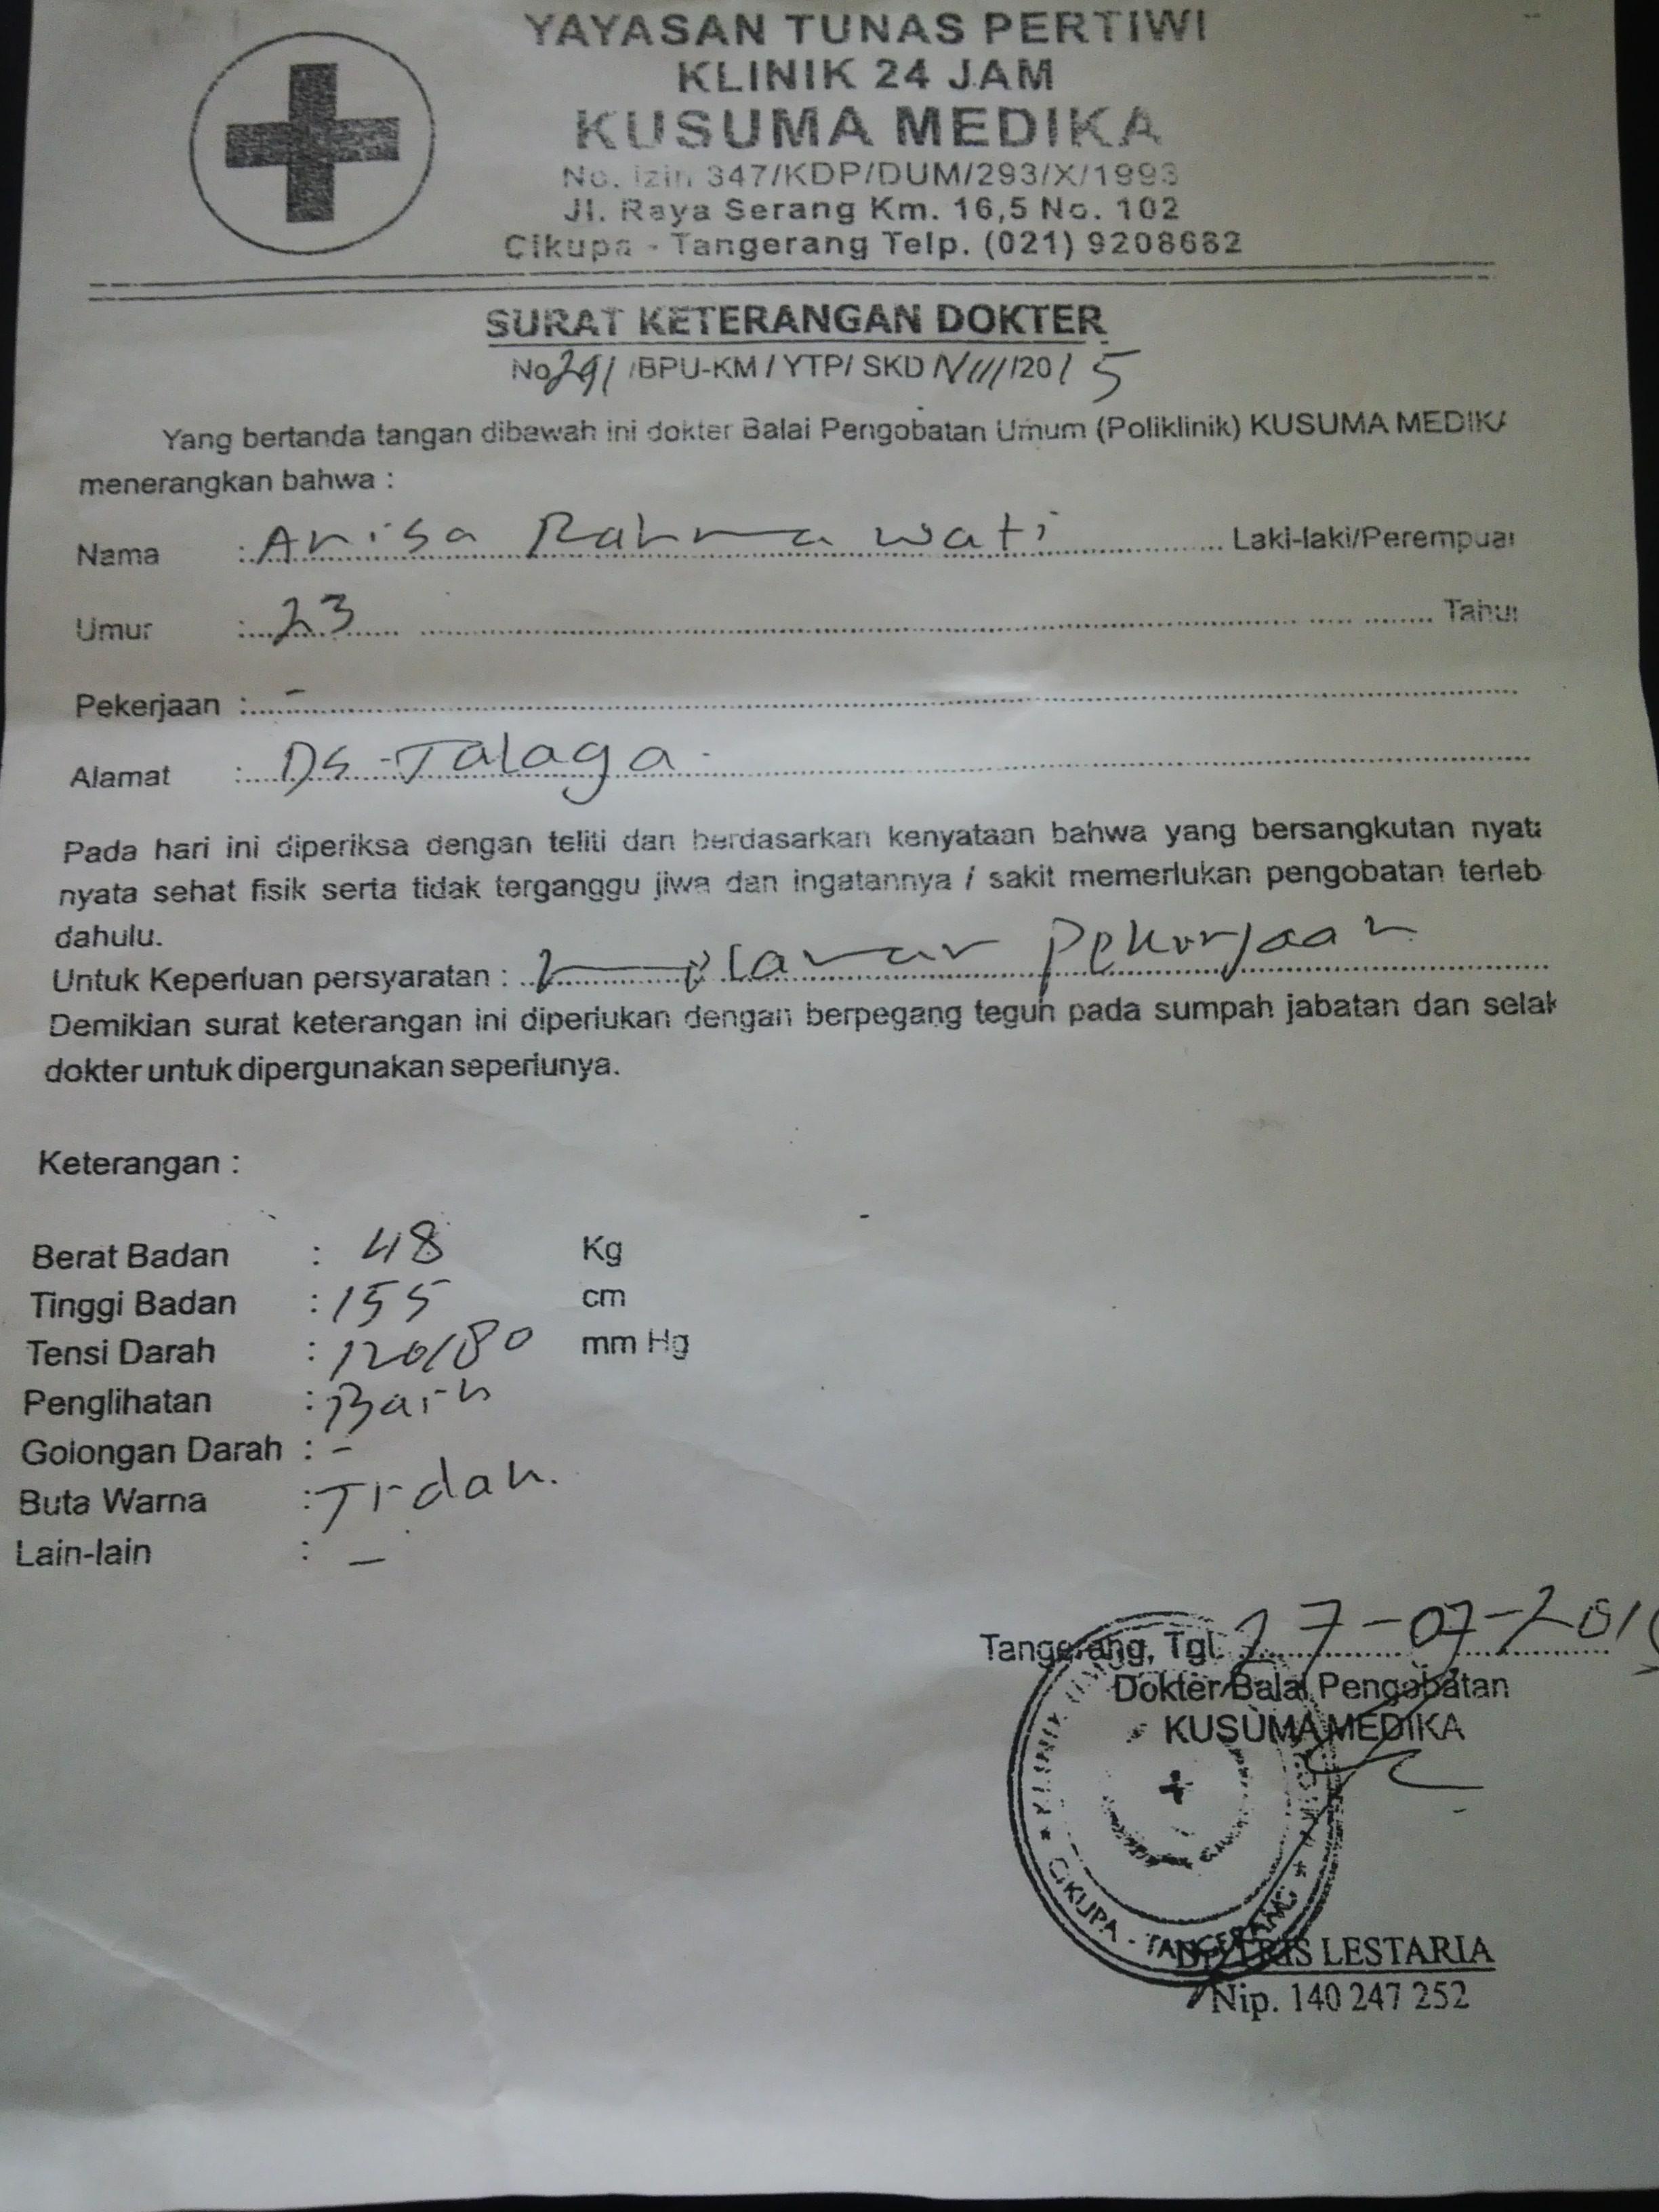 YAYASAN TUNAS PERTIWI
KLINIK 24 JAM
KUSUMA MEDIKA
No. Izin 347/KDP/DUM/293/X/1993
Jl. Raya Serang Km. 16,5 No. 102
Cikupa - Tangerang Telp. (021) 9208682
SURAT KETERANGAN DOKTER
No 291 /BPU-KM / YTP/ SKD /VII/2015
Yang bertanda tangan dibawah ini dokter Balai Pengobatan Umum (Poliklinik) KUSUMA MEDIKA
menerangkan bahwa :
Nama : Anisa Rahma wati Laki-laki/Perempuan
Umur : 23 Tahun
Pekerjaan : -
Alamat : Ds-Talaga
Pada hari ini diperiksa dengan teliti dan berdasarkan kenyataan bahwa yang bersangkutan nyata
nyata sehat fisik serta tidak terganggu jiwa dan ingatannya / sakit memerlukan pengobatan terleb
dahulu.
Untuk Keperluan persyaratan : Pekerjaan
Demikian surat keterangan ini diperlukan dengan berpegang teguh pada sumpah jabatan dan selak
dokter untuk dipergunakan seperlunya.
Keterangan :
Berat Badan : 48 Kg
Tinggi Badan : 155 cm
Tensi Darah : 120/80 mm Hg
Penglihatan : Baik
Golongan Darah : -
Buta Warna : Tidak.
Lain-lain : -
Tangerang, Tgl. 27-07-201
Dokter Balai Pengobatan
KUSUMA MEDIKA
CIKUPA - TANGERANG
LESTARIA
Nip. 140 247 252